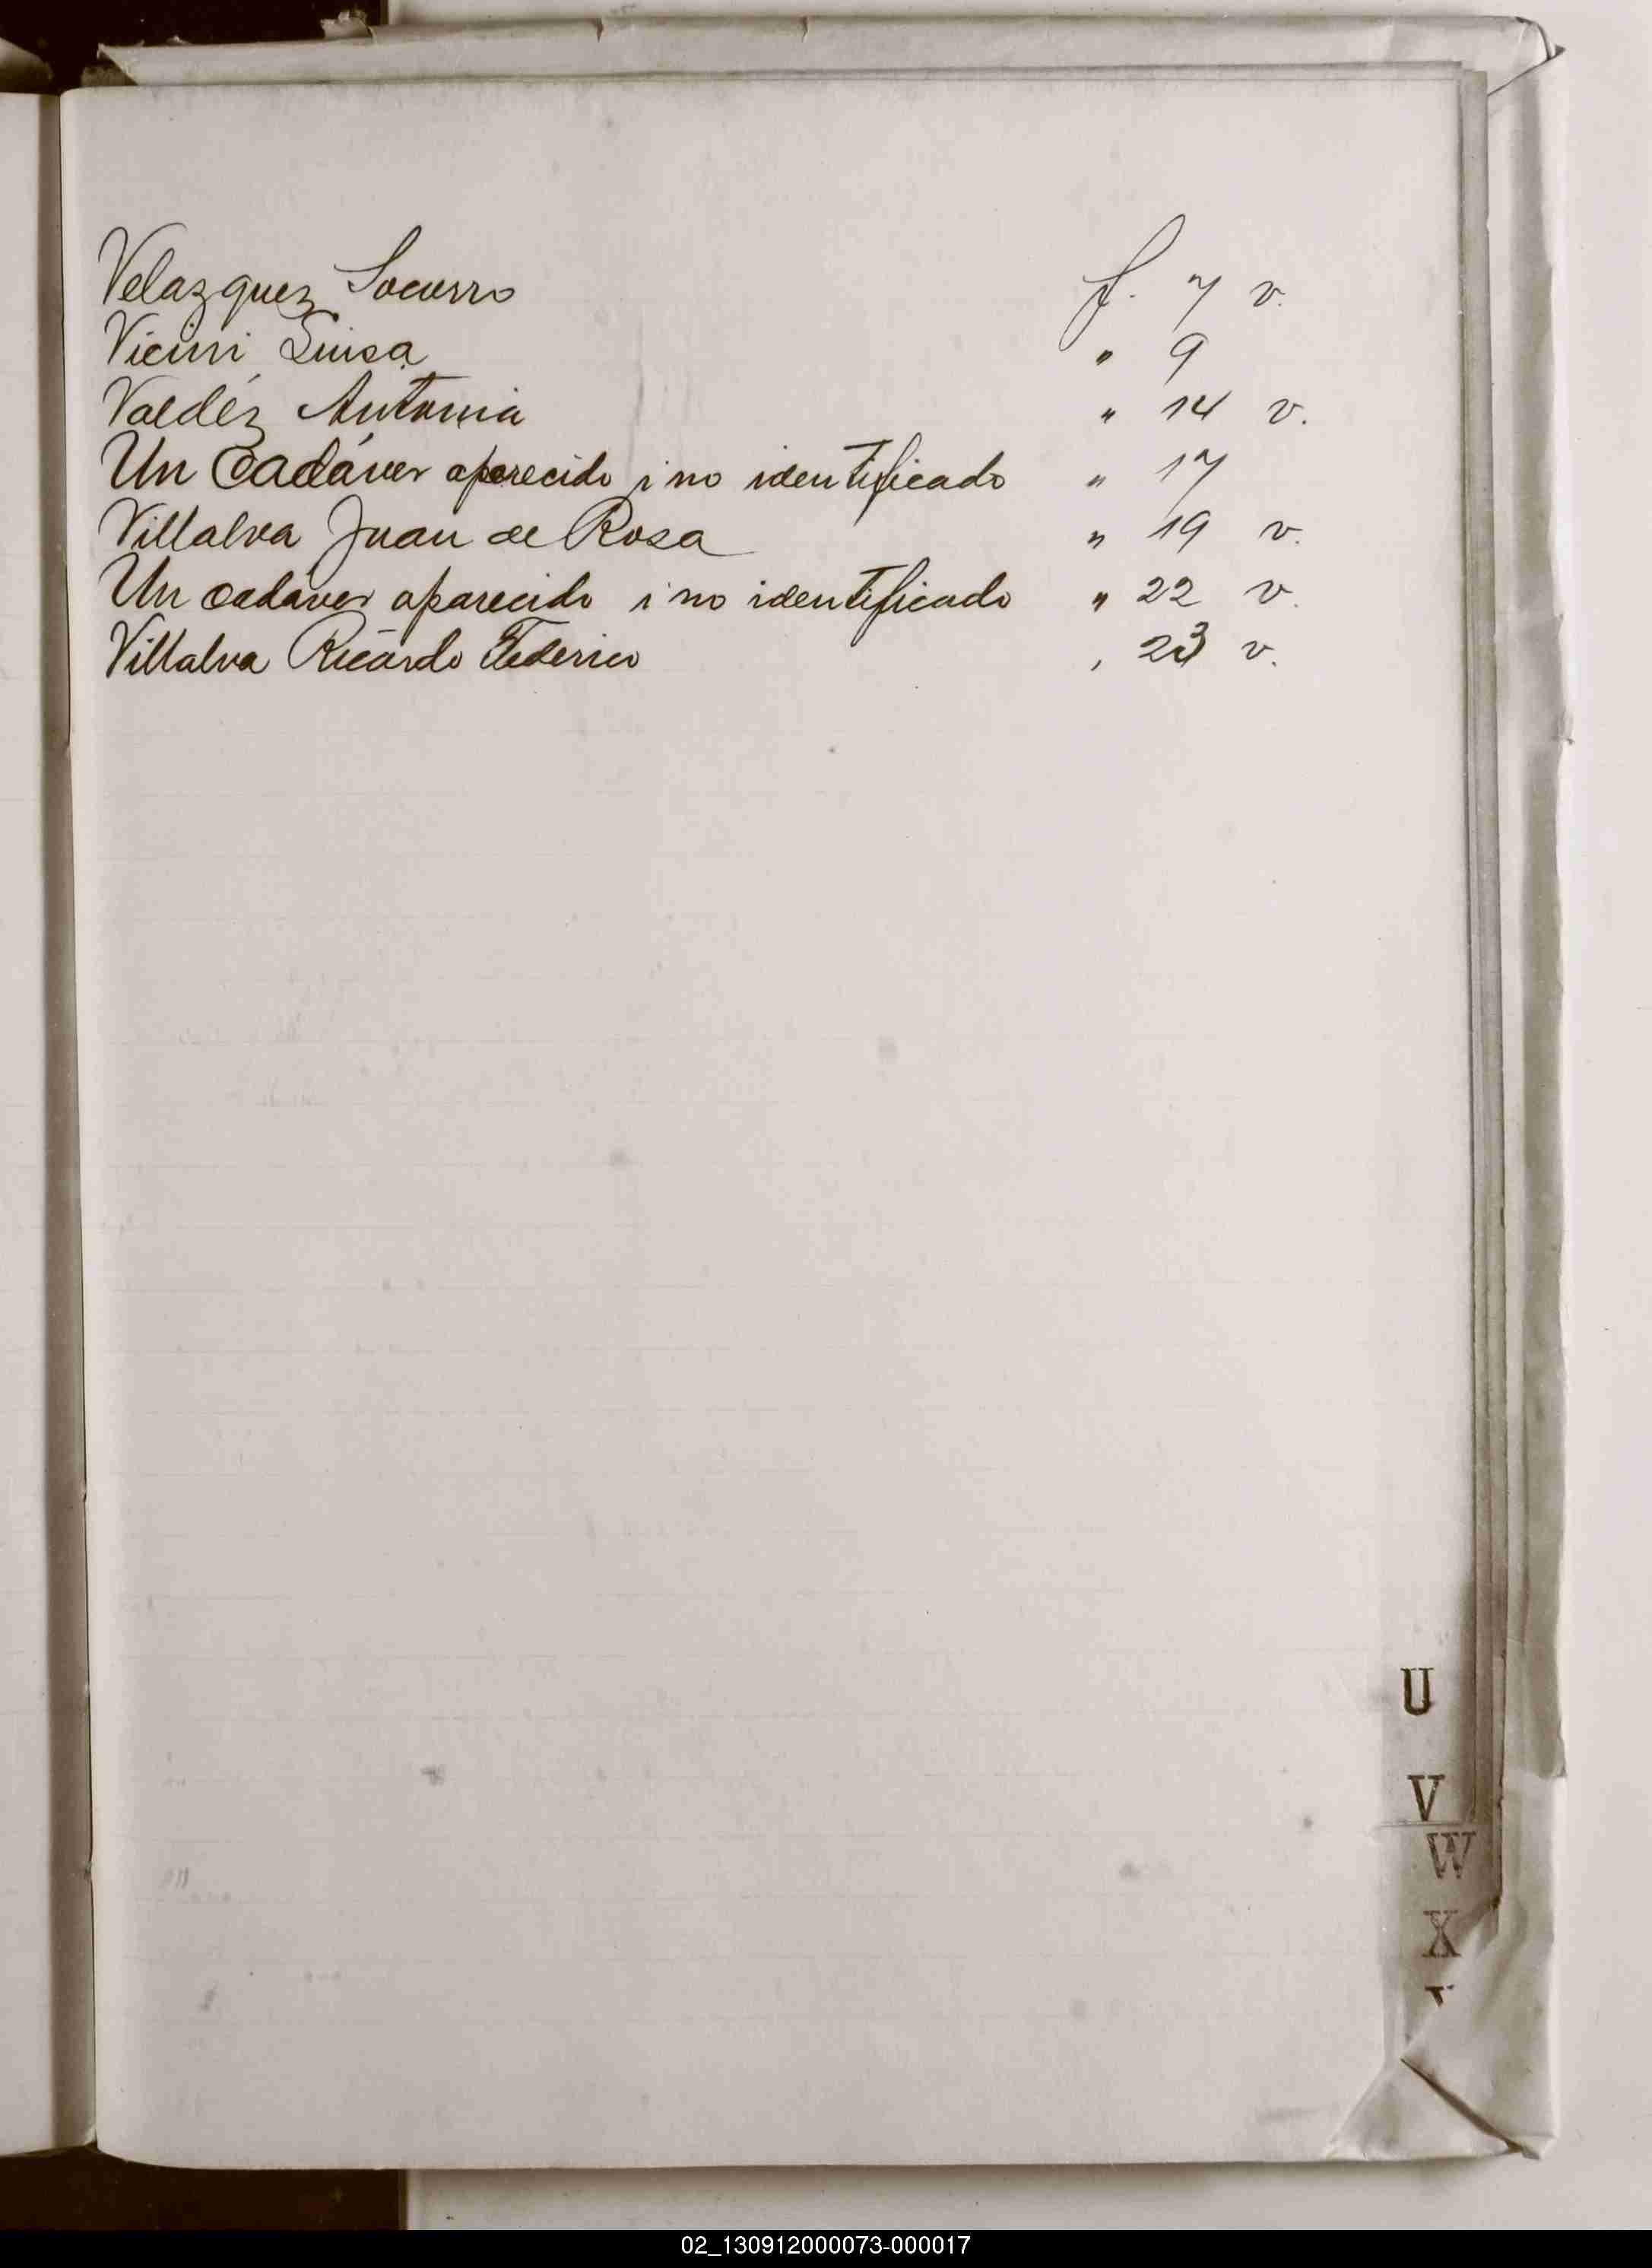 Velazquez Socorro f. 7 v.
Vicini Luisa " 9
Valdéz Antonia " 14 v.
Un Cadáver aparecido i no identificado " 17
Villalva Juan de Rosa " 19 v.
Un cadáver aparecido i no identificado " 22 v.
Villalva Ricardo Federico , 23 v.
U
V
W
X
02_130912000073-000017